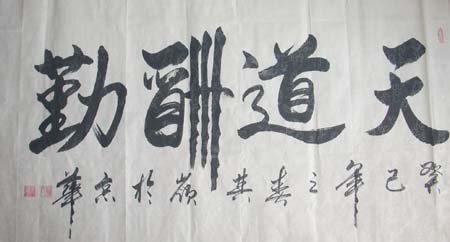 天道酬勤
癸巳年之春其嶺於京華